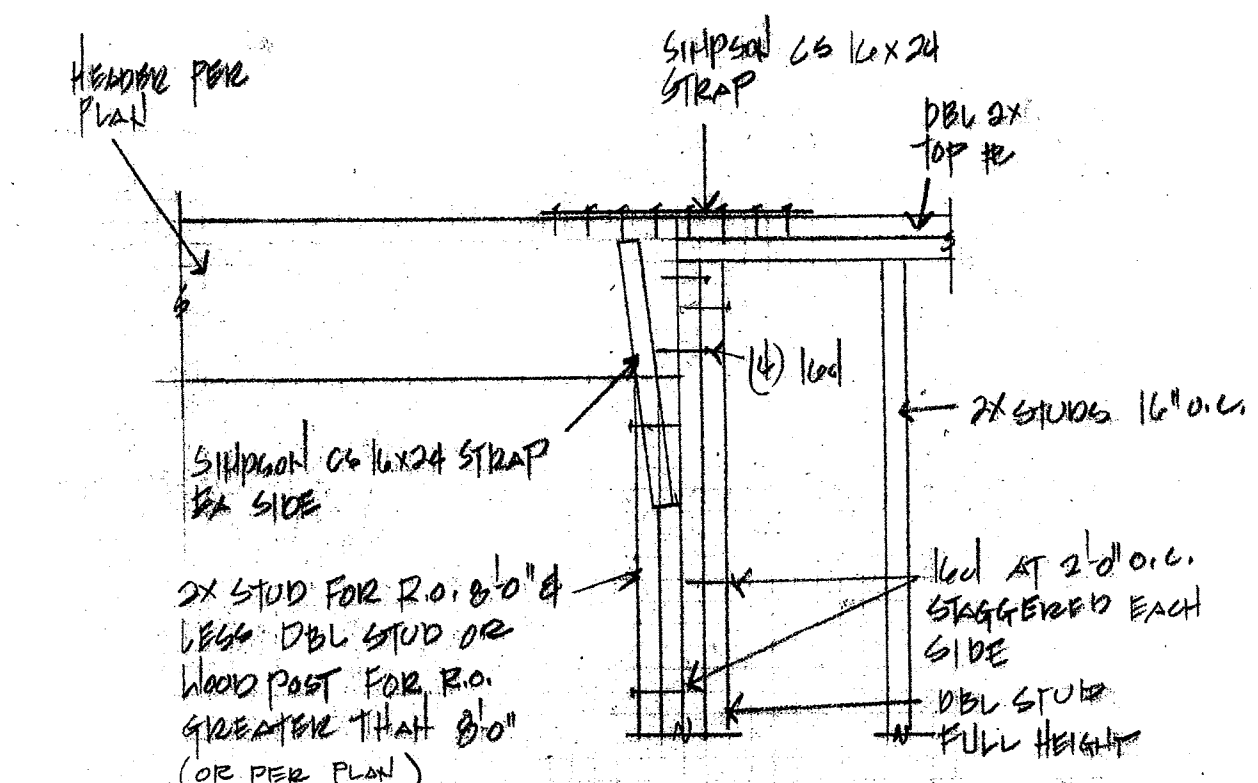 HEADER PER
PLAN
SIMPSON CS 16x24
STRAP
DBL 2X
TOP PL
(4) 16d
2X STUDS 16" O.C.
SIMPSON CS 16x24 STRAP
EA SIDE
2X STUD FOR R.O. 8'-0" &
LESS DBL STUD OR
WOOD POST FOR R.O.
GREATER THAN 8'-0"
(OR PER PLAN)
16d AT 2'-0" O.C.
STAGGERED EACH
SIDE
DBL STUD
FULL HEIGHT